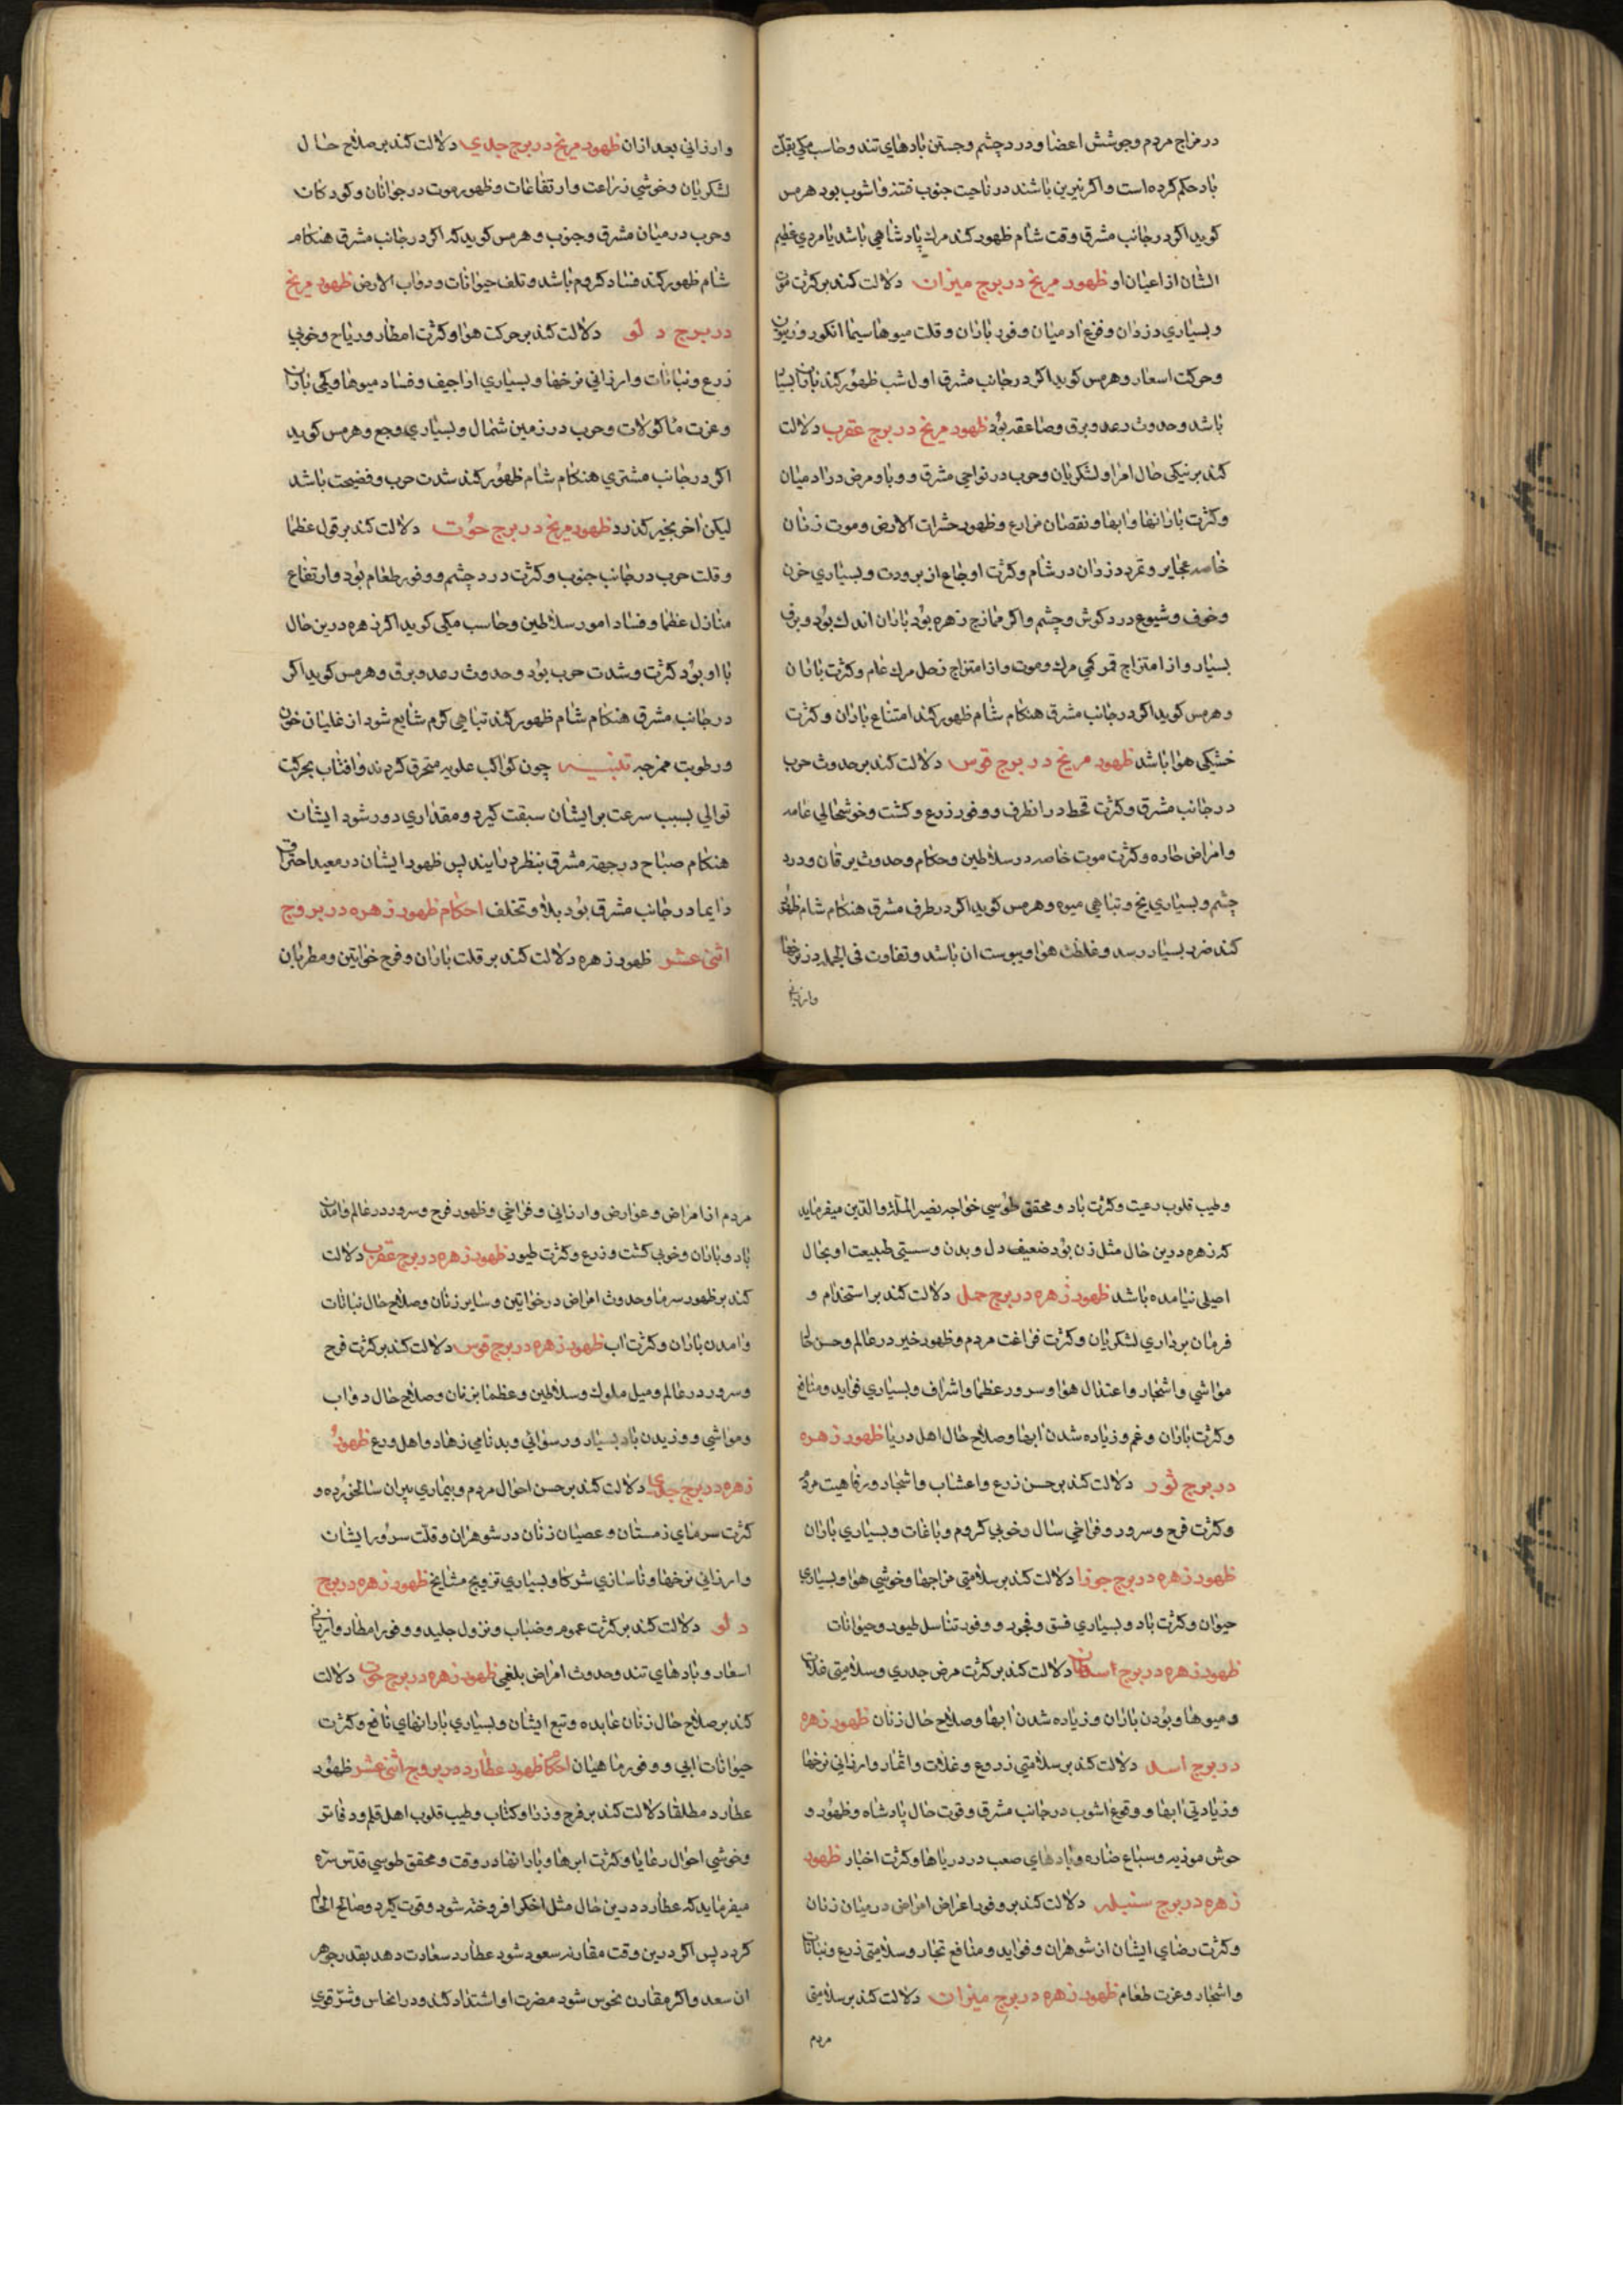 در مزاج مردم و جوشش اعضا و درد چشم و جستن بادهای تند و حاسب مکی بقلت
باد حکم کرده است و اکر نیرین باشند در ناحیت جنوب فتنه و اشوب بود هرمس
کوید اکر در جانب مشرق وقت شام ظهور کند مرك پادشاهی باشد یا مردی عظیم
الشان از اعیان او ظهور مریخ در برج میزان دلالت کند بر کثرت موت
و بسیاری دزدان و فزع ادمیان و فور باران و قلت میوها سیما انکور و زیتون
و حرکت اسعار و هرمس کوید اکر در جانب مشرق اول شب ظهور کند باران بسیار
باشد و حدوث رعد و برق و صاعقه بود ظهور مریخ در برج عقرب دلالت
کند بر نیکی حال امرا و لشکریان و حرب در نواحی مشرق و وبا و مرض در ادمیان
و کثرت بارانها و ابها و نقصان مزارع و ظهور حشرات الارض و موت زنان
خاصه عجایز و تمرد دزدان در شام و کثرت اوجاع از برودت و بسیاری حزن
و خوف و شیوع درد کوش و چشم و اکر ممازج زهره بود باران اندك بود و برف
بسیار و از امتزاج قمر کمی مرك و موت و از امتزاج زحل مرك عام و کثرت باران
و هرمس کوید اکر در جانب مشرق هنکام شام ظهور کند امتناع باران و کثرت
خشکی هوا باشد ظهور مریخ در برج قوس دلالت کند بر حدوث حرب
در جانب مشرق و کثرت قحط در انطرف و وفور زرع و کشت و خوشحالی عامه
و امراض حاره و کثرت موت خاصه در سلاطین و حکام و حدوث یرقان و درد
چشم و بسیاری یخ و تباهی میوه و هرمس کوید اکر در طرف مشرق هنکام شام ظهور
کند ضرر بسیار رسد و غلظت هوا و یبوست ان باشد و تفاوت فی الجمله در نرخها
وارزانی
وارزانی بعد ازان ظهور مریخ در برج جدی دلالت کند بر صلاح حال
لشکریان و خوشی زراعت و ارتفاعات و ظهور موت در جوانان و کودکان
و حرب در میان مشرق و جنوب و هرمس کوید که اکر در جانب مشرق هنکام
شام ظهور کند فساد کروم باشد و تلف حیوانات و دواب الارض ظهور مریخ
در برج دلو دلالت کند بر حرکت هوا و کثرت امطار و ریاح و خوبی
زرع و نباتات و ارزانی نرخها و بسیاری اراجیف و فساد میوها و کمی باران
و عزت ماکولات و حرب در زمین شمال و بسیاری وجع و هرمس کوید
اکر در جانب مشتری هنکام شام ظهور کند شدت حرب و فضیحت باشد
لیکن اخر بخیر کذرد ظهور مریخ در برج حوت دلالت کند بر قول عظما
و قلت حرب در جانب جنوب و کثرت درد چشم و وفور طعام بود و ارتفاع
منازل عظما و فساد امور سلاطین و حاسب مکی کوید اکر زهره درین حال
با او بود کثرت و شدت حرب بود و حدوث رعد و برق و هرمس کوید اکر
در جانب مشرق هنکام شام ظهور کند تباهی کرم شایع شود از غلیان خون
و رطوبت ممزجه تنبیه چون کواکب علویه متحرق کردند و افتاب بحرکت
توالی بسبب سرعت بر ایشان سبقت کیرد و مقداری دور شود ایشان
هنکام صباح در جهة مشرق بنظر در ایند پس ظهور ایشان در معید احتراق
دایما در جانب مشرق بود بلا و تخلف احکام ظهور زهره در بروج
اثنی عشر ظهور زهره دلالت کند بر قلت باران و فرح خواتین و مطربان
و طیب قلوب رعیت و کثرت باد و محقق طوسی خواجه نصیر الملة والدین میفرماید
که زهره درین حال مثل زن بود ضعیف دل و بدن و سستی طبیعت او بحال
اصلی نیامده باشد ظهور زهره در برج حمل دلالت کند بر استخدام و
فرمان برداری لشکریان و کثرت فراغت مردم و ظهور خیر در عالم و حسن حال
مواشی و اشجار و اعتدال هوا و سرور عظما و اشراف و بسیاری فواید و منافع
و کثرت باران و غم و زیاده شدن ابها و صلاح حال اهل دریا ظهور زهره
در برج ثور دلالت کند بر حسن زرع و اعشاب و اشجار و رفاهیت مردم
و کثرت فرح و سرور و فراخی سال و خوبی کروم و باغات و بسیاری باران
ظهور زهره در برج جوزا دلالت کند بر سلامتی مزاجها و خوشی هوا و بسیاری
حیوان و کثرت باد و بسیاری فسق و فجور و وفور تناسل طیور و حیوانات
ظهور زهره در برج دلالت کند بر کثرت مرض جدری و سلامتی غلات
و میوها و بودن باران و زیاده شدن ابها و صلاح حال زنان ظهور زهره
در برج اسد دلالت کند بر سلامتی زروع و غلات و اثمار و ارزانی نرخها
و زیادتی ابها و وقوع اشوب در جانب مشرق و قوت حال پادشاه و ظهور و
حوش موذیه و سباع ضاره و بادهای صعب در دریاها و کثرت اخبار ظهور
زهره در برج سنبله دلالت کند بر وفور اعراض امراض در میان زنان
و کثرت رضای ایشان از شوهران و فواید و منافع تجار و سلامتی زرع و نباتات
و اشجار و عزت طعام ظهور زهره در برج میزان دلالت کند بر سلامتی
مردم
مردم از امراض و عوارض و ارزانی و فراخی و ظهور فرح و سرور در عالم و امدن
باد و باران و خوبی کشت و زرع و کثرت طیور ظهور زهره در برج عقرب دلالت
کند بر ظهور سرما و حدوث امراض در خواتین و سایر زنان و صلاح حال نباتات
و امدن باران و کثرت اب ظهور زهره در برج قوس دلالت کند بر کثرت فرح
و سرور در عالم و میل ملوك و سلاطین و عظما بزنان و صلاح حال دواب
و مواشی و وزیدن باد بسیار و رسوائی و بدنامی زهاد و اهل ورع ظهور
زهره در برج جدی دلالت کند بر حسن احوال مردم و بیماری پیران سالخورده و
کثرت سرمای زمستان و عصیان زنان در شوهران و قلت سرور ایشان
و ارزانی نرخها و ناسازی شرکا و بسیاری تزویج مشایخ ظهور زهره در برج
دلو دلالت کند بر کثرت غموم و ضباب و نزول جلید و وفور امطار و ارزانی
اسعار و بادهای تند و حدوث امراض بلغمی ظهور زهره در برج حوت دلالت
کند بر صلاح حال زنان عابده و تبع ایشان و بسیاری بارانهای نافع و کثرت
حیوانات ابی و وفور ماهیان احکام ظهور عطارد در بروج اثنی عشر ظهور
عطارد مطلقا دلالت کند بر فرح وزرا و کتاب و طیب قلوب اهل قلم و دفاتر
و خوشی احوال رعایا و کثرت ابرها و بارانها در وقت و محقق طوسی قدس سره
میفرماید که عطارد درین حال مثل اخکر افروخته شود و قوت کیرد و صالح الحال
کردد پس اکر درین وقت مقارنه سعود شود عطارد سعادت دهد بقدر جوهر
ان سعد و اکر مقارن نحوس شود مضرت او اشتداد کند و در انحاس و شر قوی